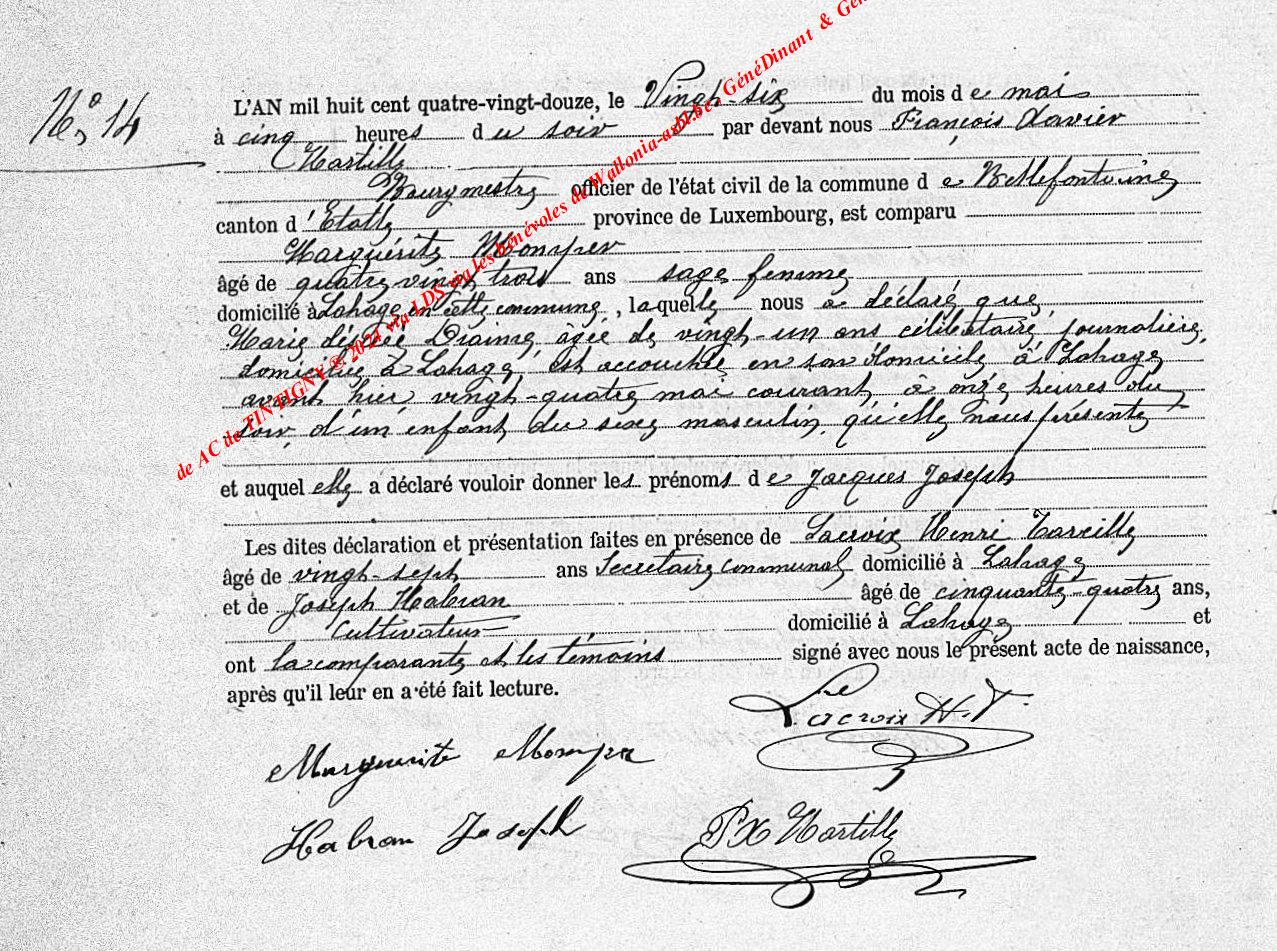 de AC de TINTIGNY © 2021 via LDS via les bénévoles de Wallonia-asbl.be, GénéDinant & Gén
N° 14
L'AN mil huit cent quatre-vingt-douze, le Vingt-six du mois de mai
à cinq heures du soir par devant nous François Xavier
Hartille
Bourgmestre officier de l'état civil de la commune de Bellefontaine
canton d'Etalle province de Luxembourg, est comparu
Marguérite Momper
âgé de quatre vingt trois ans sage femme
domicilié à Lahage en cette commune, laquelle nous a déclaré que
Marie désirée Draime âgée de vingt-un ans célibataire, journalière,
domiciliée à Lahage est accouchée en son domicile à Lahage
avant hier vingt-quatre mai courant à onze heures du
soir, d'un enfant du sexe masculin, qu'elle nous présente
et auquel elle a déclaré vouloir donner les prénoms de Jacques Joseph
Les dites déclaration et présentation faites en présence de Lacroix Henri
âgé de vingt-sept ans Secrétaire communal domicilié à Lahage
et de Joseph Habran âgé de cinquante-quatre ans,
Cultivateur domicilié à Lahage et
ont la comparante et les témoins signé avec nous le présent acte de naissance,
après qu'il leur en a été fait lecture.
Lacroix H.T.
Marguerite Momper
Habran Joseph
FX Hartille